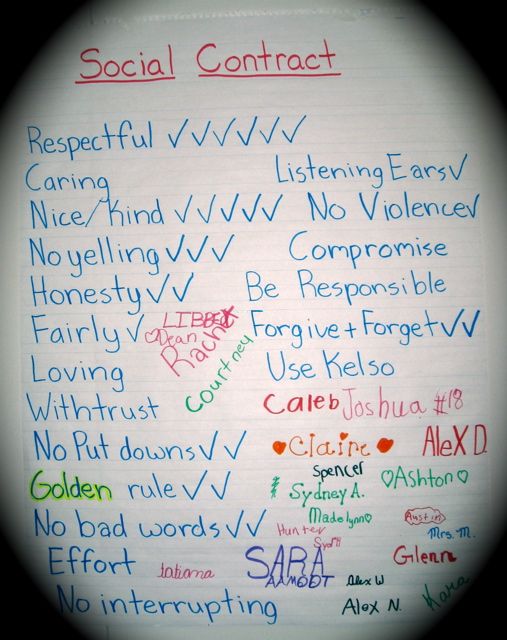 Social Contract
Respectful ✓✓✓✓✓✓
Caring
Listening Ears✓
Nice/Kind ✓✓✓✓✓
No Violence✓
No yelling ✓✓✓
Compromise
Honesty ✓✓
Be Responsible
Fairly ✓
LIBBE
♡Dean
Rachel
Courtney
Forgive + Forget ✓✓
Loving
Use Kelso
With trust
Caleb
Joshua #18
No Put downs ✓✓
Claire
Alex D.
Golden rule ✓✓
Spencer
Sydney A.
♡Ashton♡
No bad words ✓✓
Madelynn♡
Hunter
Austin
Mrs. M.
Effort
tatiana
SARA
AAMODT
Glenn
Alex W
No interrupting
Alex N.
Kara